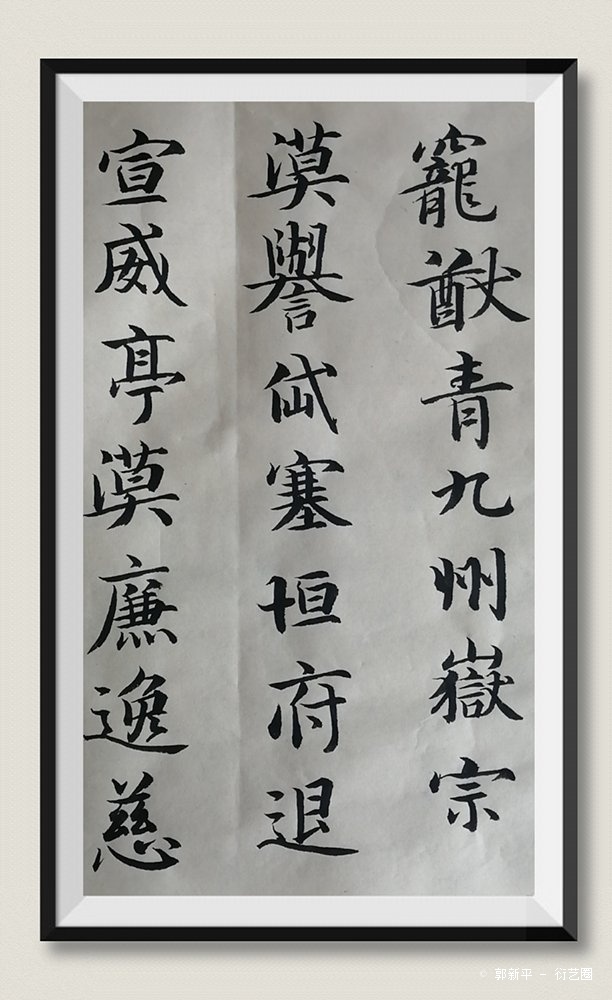 寵猷青九州嶽宗
漠譽岱塞恒府退
宣威亭漠廉逸慈
© 郭新平 - 衍艺圈